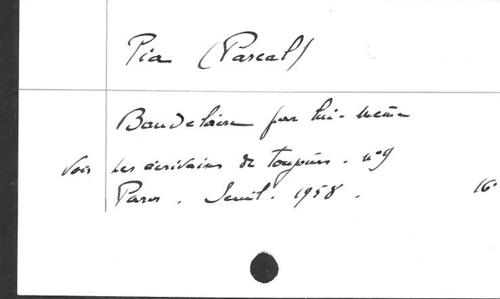 Pia (Pascal)
Baudelaire par lui-même
Voir les écrivains de toujours. n°9
Paris. Seuil. 1958.
16°